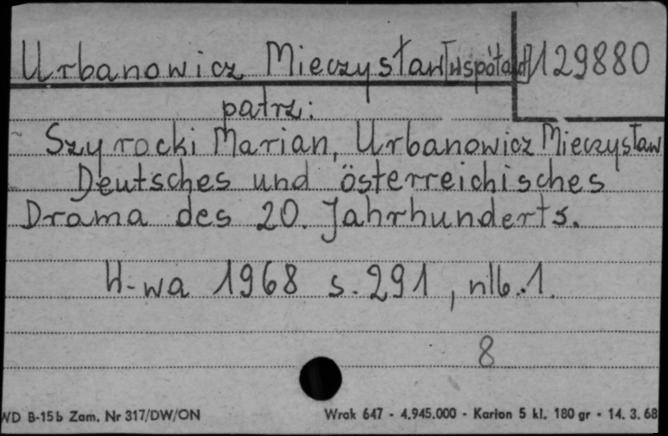 Urbanowicz Mieczysław [współaut] 129880
patrz:
Szyrocki Marian, Urbanowicz Mieczysław
Deutsches und österreichisches
Drama des 20. Jahrhunderts.
W-wa 1968 s. 291, nlb. 1.
8
WD B-15b Zam. Nr 317/DW/ON Wrak 647 - 4.945.000 - Karton 5 kl. 180 gr - 14. 3. 68